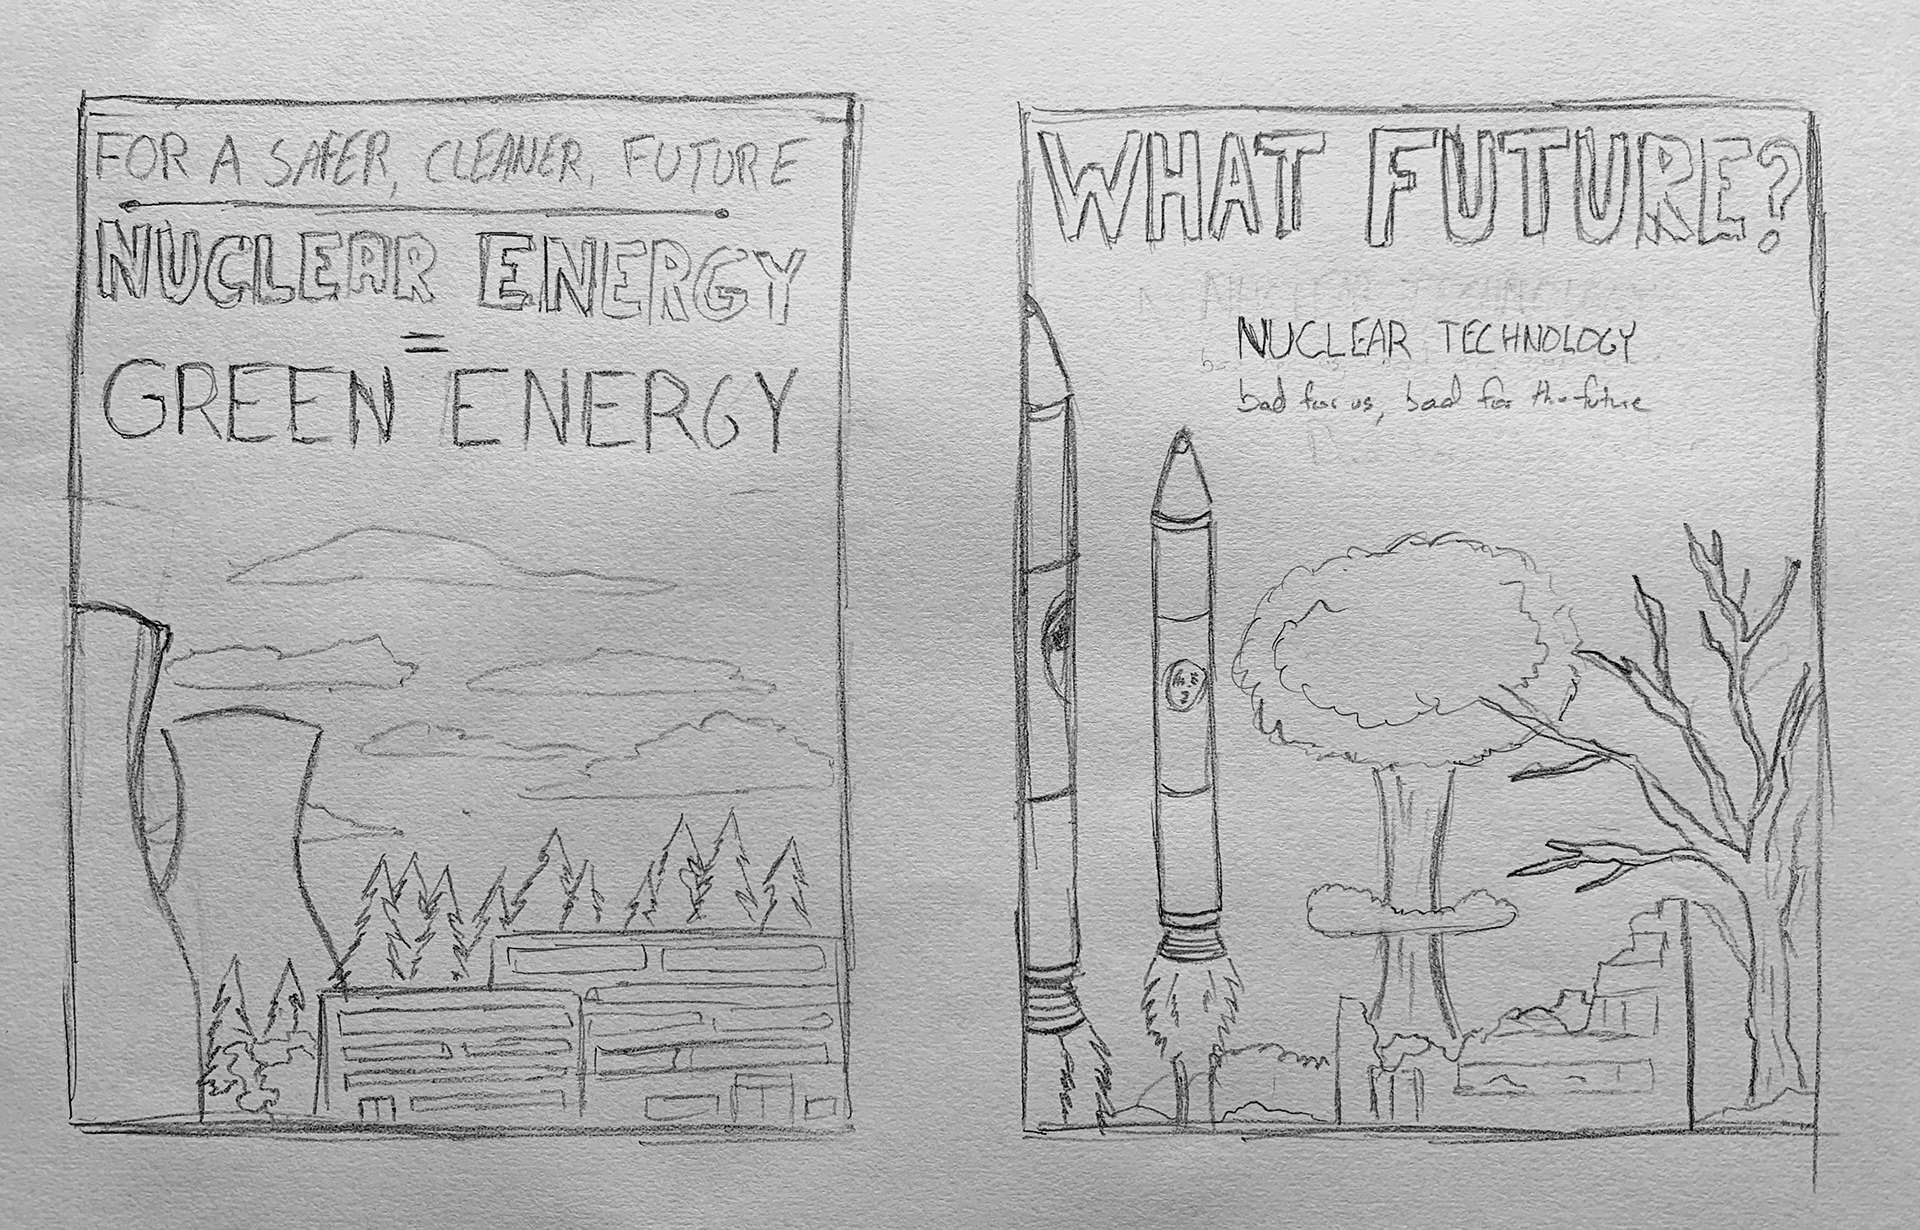 FOR A SAFER, CLEANER, FUTURE
NUCLEAR ENERGY
=
GREEN ENERGY
WHAT FUTURE?
NUCLEAR TECHNOLOGY
NUCLEAR TECHNOLOGY
bad for us, bad for the future